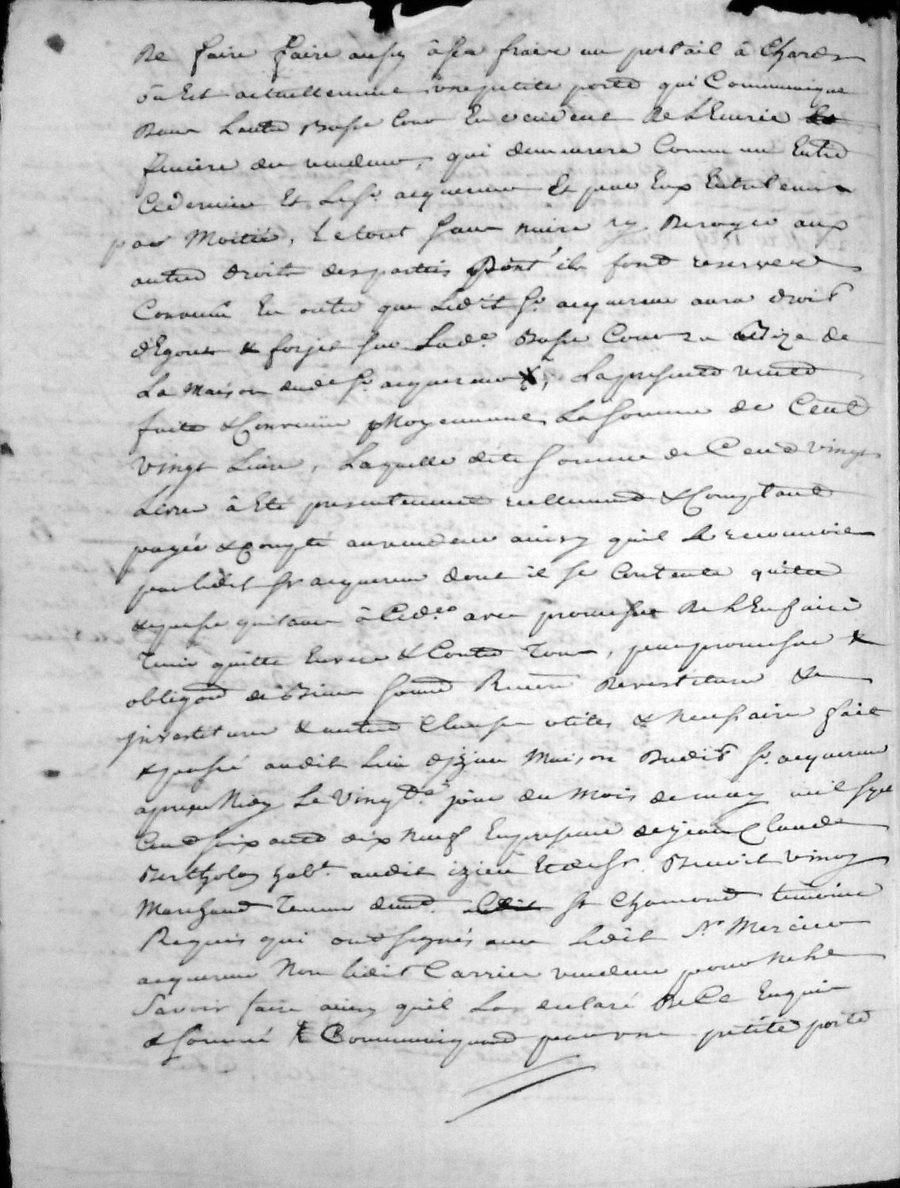 De faire faire aussy à ses fraix un portail à Chard
ou Est actuellement une petite porte qui Communique
Dans Laute Basse Cour En occident de l'Ecurie
du vendeur, qui demeurera Commun Entre
Ce dernier Et Le Sr. acquereur Et par Eux Entretenu
par Moitié, Le tout sans nuire ny Deroger aux
autres droits des parties Dont ils font reserves
Convenu En outre que Ledit Sr. acquereur aura droit
d'Egout & forjet sur Lade. Basse Cour de
La Maison dud. Sr. acquereur, La presente vente
faite & Convenüe Moyennant La somme de Cent
vingt Livre, Laquelle dite somme de Cent vingt
Livre à Eté presentement reellement & Comptant
payée & Compté au vendeur ainsy qu'il Le reconnoit
par ledit Sr acquereur dont il se Contente quitte
& passe quitance à avec promesse De l'En faire
Tenir quitte Envers & Contre Tous, par promesse &
obligaon de Biens Devestiture &
investiture & autres Clauses utiles & necessaire fait
& passé audit Lieu d'izieu Maison Dudit Sr. acquereur
apres Midy Le Vingt jour du Mois de may mil sept
Cent soixante dix neuf En presence de jean Claude
Bertholon habt. audit izieu Et de Sr. Benoit vinoy
Marchand St Chamond temoins
Requis qui ont signés avec Ledit Sr Mercier
acquereur Non Ledit Carrier vendeur pour ne
Savoir faire ainsy qu'il La declaré De Ce Enquis
& sommé & Communiquant par une petite porte